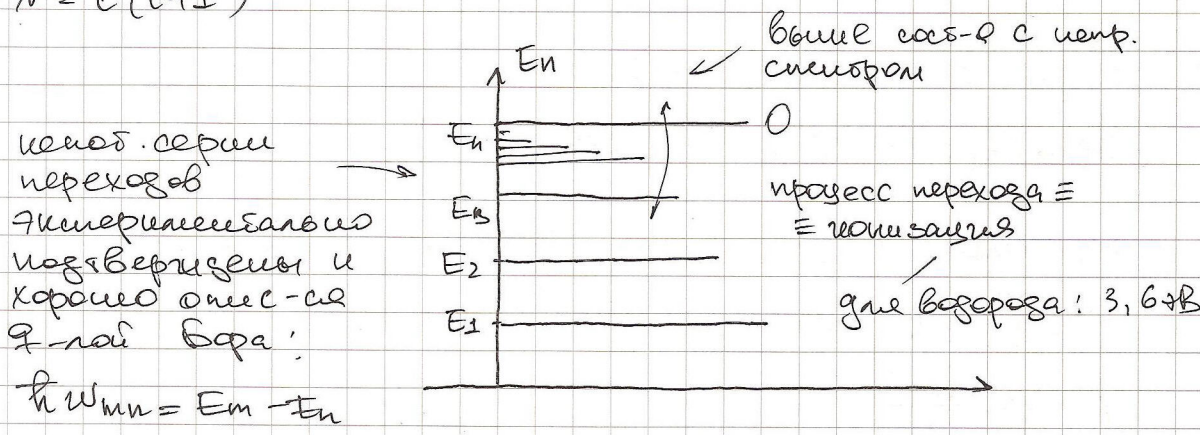 выше сост-я с непр.
спектром
En
0
некот. серии
переходов
экспериментально
подтверждены и
хорошо опис-ся
ф-лой Бора:
ħωmn = Em - En
En
E3
E2
E1
процесс перехода ≡
≡ ионизация
для водорода: 3,6 эВ